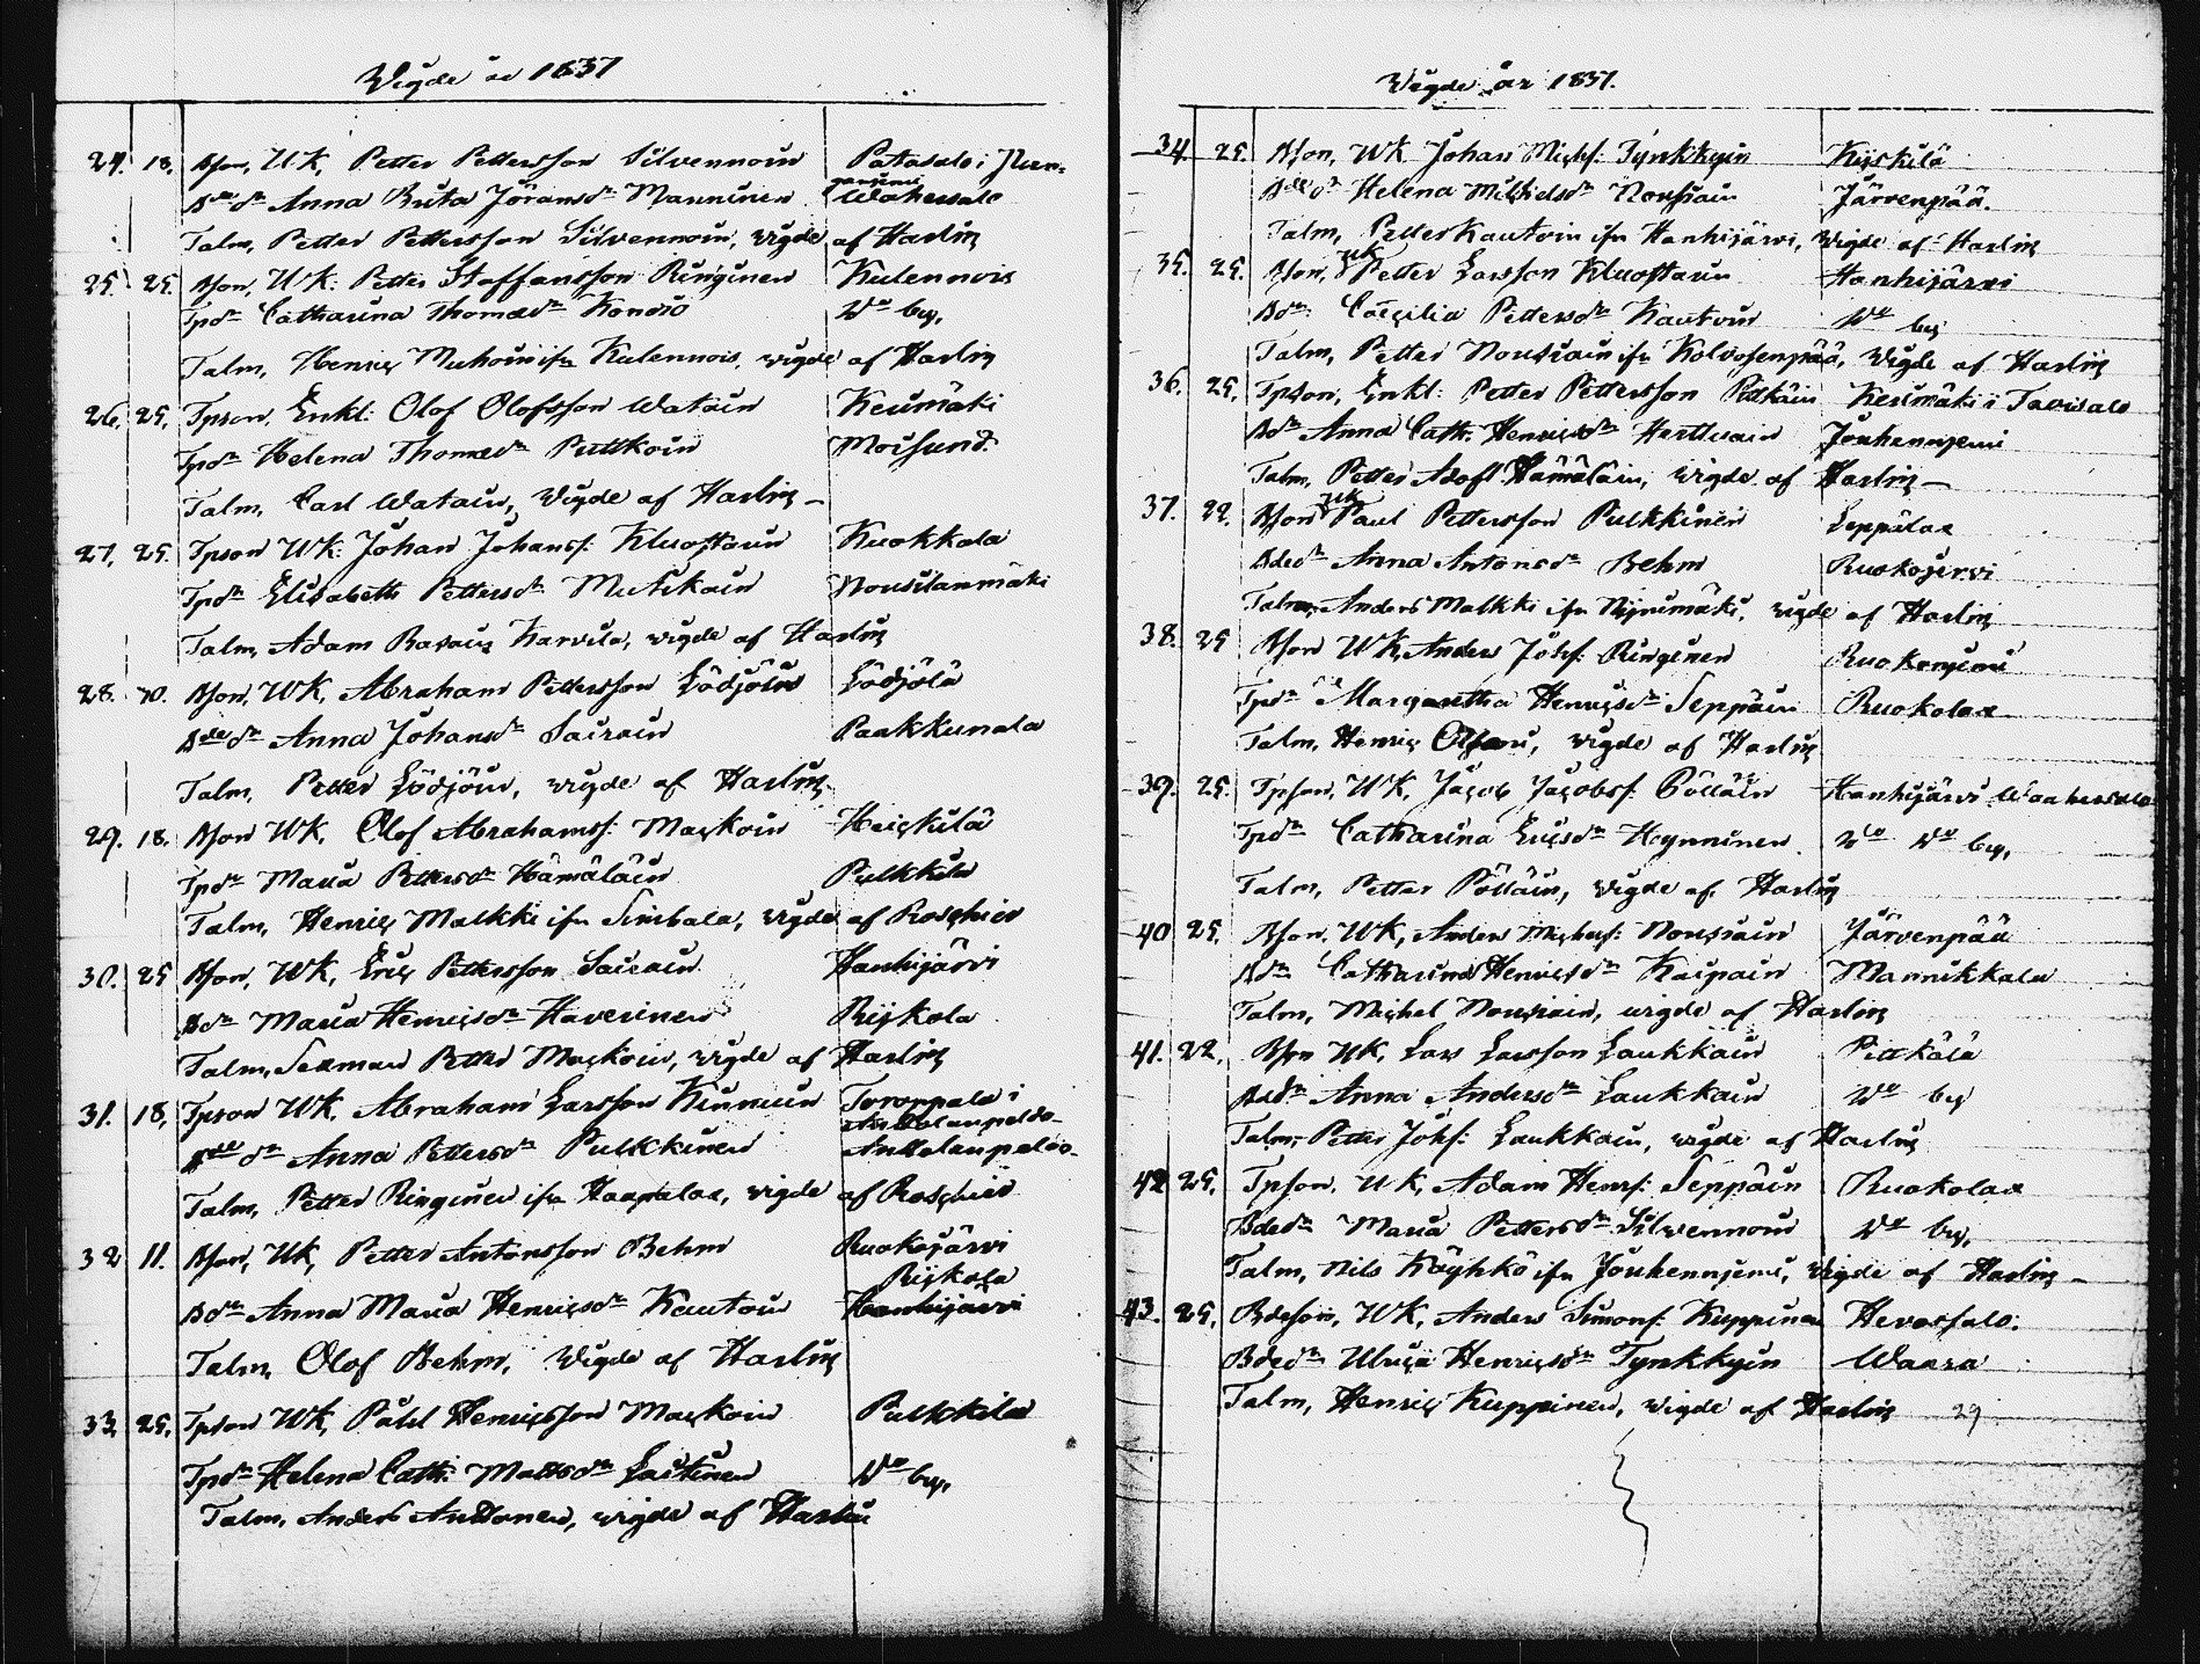 Wigde år 1837
24. 18. Bson, UK, Petter Pettersson Silvennoin Patasalo i Jlun=
Bdedr Anna Brita Jöransdr Manninen ganjemi Wähersalo
Talm, Petter Pettersson Silvennoin, wigde af Harling
25. 25. Bson, UK: Petter Staffansson Ringinen Kulennois
Tpdr Catharina Thomædr Konsio Do by,
Talm, Henric Muhoin ifn Kulennois, wigde af Harling
26. 25. Tpson, Enkl: Olof Olofsson Watain Kesimäki
Tpdr Helena Thomædr Puttkoin Moisund
Talm, Carl Watain, Wigde af Harling –
27. 25. Tpson UK: Johan Johanss: Kluostarin Kuokkala
Tpdr Elisabeth Pettersdr Mutikain Nousilanmäki
Talm, Adam Rasain Karvila, wigde af Harling
28. 20. Bson, UK, Abraham Pettersson Lödjöin Lödjölä
Bdedr Anna Johansdr Sairain Paakkunala
Talm, Petter Lödjöin, wigde af Harling
29. 18. Bson UK, Olof Abrahamss: Mackoin Heickilä
Tpdr Maria Pettersdr Hämäläin Pulkkila
Talm, Henric Malkki ifn Simbala, wigde af Roschier
30. 25 Bson, UK, Eric Pettersson Sairain Hanhijärvi
Bdr Maria Henricsdr Haverinen Rijkola
Talm, Sexman Petter Mackoin, wigde af Harling
31. 18. Tpson UK, Abraham Larsson Kinnuin Toroppala i
Anttolanpeldo
Bdedr Anna Pettersdr Pulkkinen Anttolanpeldo
Talm, Petter Ringinen ifn Haapalax, wigde af Roschier
32 11. Bson, UK, Petter Antonsson Behm Ruokojärvi
Rijkola
Bdr Anna Maria Henricsdr Kautoin Hanhijärvi
Talm, Olof Behm, Wigde af Harling
33. 25. Tpson UK, Påhl Henricsson Mackoin Pulkkila
Tpdr Helena Cath: Mattsdr Laitinen Do by,
Talm, Anders Anttonen, wigde af Harlin
Wigde år 1837.
34. 25. Bson, UK Johan Michs: Tynkkyin Kijskilä
Bdedr Helena Michelsdr Nousiain Järvenpää.
Talm, Petter Kautoin ifn Hanhijärvi, Wigde af Harling
35. 25. Bson, UK Petter Larsson Kluostarin Hanhijärvi
Bdr Cæcilia Pettersdr Kautoin Do by
Talm, Petter Nousiain ifn Kolvosenpää, Wigde af Harling
36. 25. Tpson, Enkl: Petter Pettersson Pitkäin Kesimäki i Tavisalo
Bdr Anna Cath: Henricsdr Herttuain Jouhennjemi
Talm, Petter Adolf Hämäläin, wigde af Harling –
37. 22. Bson UK Paul Pettersson Pulkkinen Leppälax
Bdedr Anna Antonsdr Behm Ruokojervi
Talm, Anders Malkki ifn Nijnimäki, wigde af Harling
38. 25 Bson UK, Anders Johs: Ringinen Ruokonjemi
Tpdr Margaretha Henricsdr Seppäin Ruokolax
Talm, Henric wigde af Harling
39. 25. Tpson, UK, Jacob Jacobss: Pölläin Hanhijärvi Waahersalo
Tpdr Catharina Ericsdr Heynninen Do Do by,
Talm, Petter Pölläin, wigde af Harling
40 25. Bson, UK, Anders Michels: Nousiain Järvenpää
Bdr Catharina Henricsdr Kaipain Mannikkala
Talm, Michel Nousiain, wigde af Harling
41. 22. Bson UK, Lars Larsson Laukkain Pittkälä
Bdedr Anna Andersdr Laukkain Do by
Talm, Petter Johs: Laukkain, wigde af Harling
42 25. Tpson, UK, Adam Henrs: Seppäin Ruokolax
Bdedr Maria Pettersdr Silvennoin Do by,
Talm, Nils Käyhkö ifn Jouhennjemi, Wigde af Harling –
43. 25. Bdeson, UK, Anders Simons: Kuppinen Hevossalo:
Bdedr Ulrica Henricsdr Tynkkyin Waara
Talm, Henric Kuppinen, wigde af Harling 29